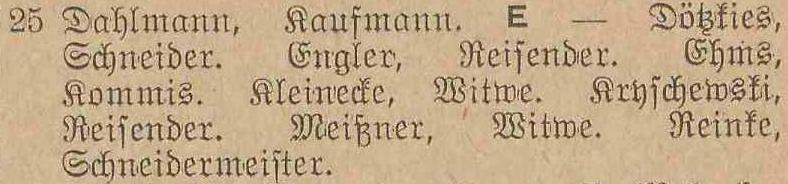 25 Dahlmann, Kaufmann. E — Dötzkies,
Schneider. Engler, Reisender. Ehms,
Kommis. Kleinecke, Witwe. Kryschewski,
Reisender. Meißner, Witwe. Reinke,
Schneidermeister.